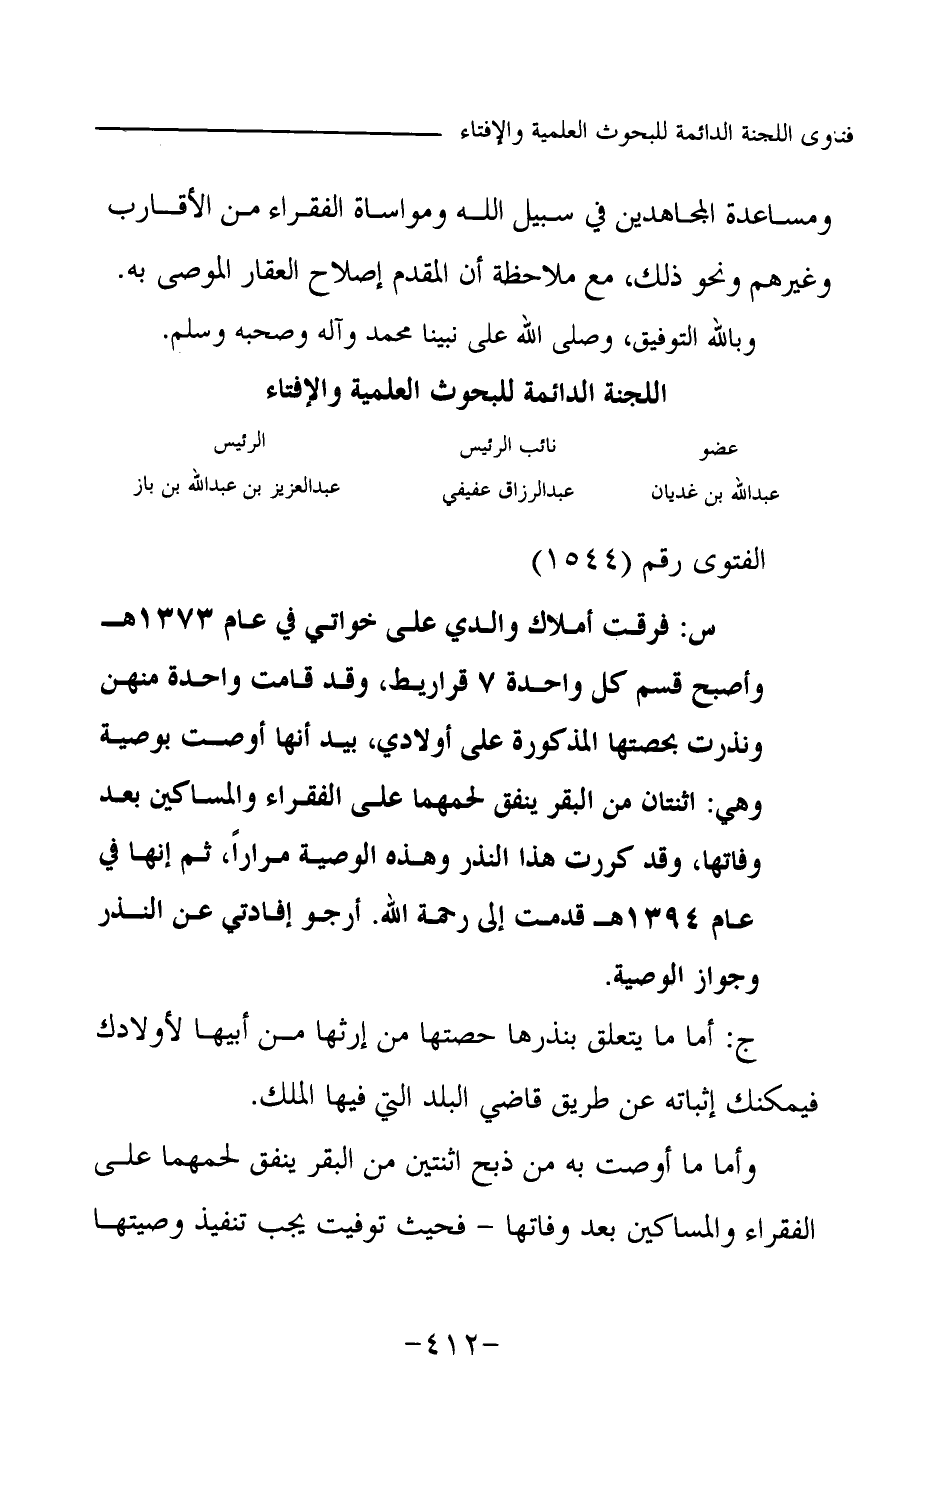 فتاوى اللجنة الدائمة للبحوث العلمية والإفتاء
ومساعدة المجاهدين في سبيل الله ومواساة الفقراء من الأقارب
وغيرهم ونحو ذلك، مع ملاحظة أن المقدم إصلاح العقار الموصى به.
وبالله التوفيق، وصلى الله على نبينا محمد وآله وصحبه وسلم.
اللجنة الدائمة للبحوث العلمية والإفتاء
عضو نائب الرئيس الرئيس
عبدالله بن غديان عبدالرزاق عفيفي عبدالعزيز بن عبدالله بن باز
الفتوى رقم (١٥٤٤)
س: فرقت أملاك والدي على خواتي في عام ١٣٧٣هـ
وأصبح قسم كل واحدة ٧ قراريط، وقد قامت واحدة منهن
ونذرت بحصتها المذكورة على أولادي، بيد أنها أوصت بوصية
وهي: اثنتان من البقر ينفق لحمهما على الفقراء والمساكين بعد
وفاتها، وقد كررت هذا النذر وهذه الوصية مراراً، ثم إنها في
عام ١٣٩٤هـ قدمت إلى رحمة الله. أرجو إفادتي عن النذر
وجواز الوصية.
ج: أما ما يتعلق بنذرها حصتها من إرثها من أبيها لأولادك
فيمكنك إثباته عن طريق قاضي البلد التي فيها الملك.
وأما ما أوصت به من ذبح اثنتين من البقر ينفق لحمهما على
الفقراء والمساكين بعد وفاتها - فحيث توفيت يجب تنفيذ وصيتها
-٤١٢-